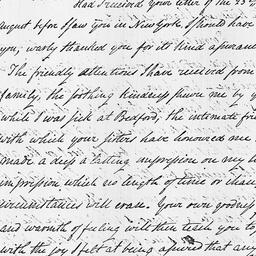 Had I received your letter of the 23d
August before I saw you in New York, I should have
you, warmly thanked you for its kind assurance
The friendly attentions I have received from
family, the soothing kindness shewn me by y
while I was sick at Bedford, the intimate frie
with which your sisters have honoured me
made a deep & lasting impression on my h
impression which no length of time or chan
circumstances will erase. Your own goodness
and warmth of feeling will then teach you to
with the joy I felt at being assured that any